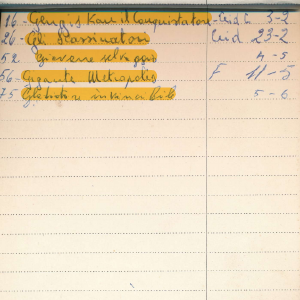 16 - Gengis Kan il Conquistatore - Ceid. C 3-2
26 - Gli Sterminatori Ceid 23-2
52 Giovane selvaggio 4-5
56 - Gigante Metropolis F 11-5
75 Gladiatore invincibile 5-6